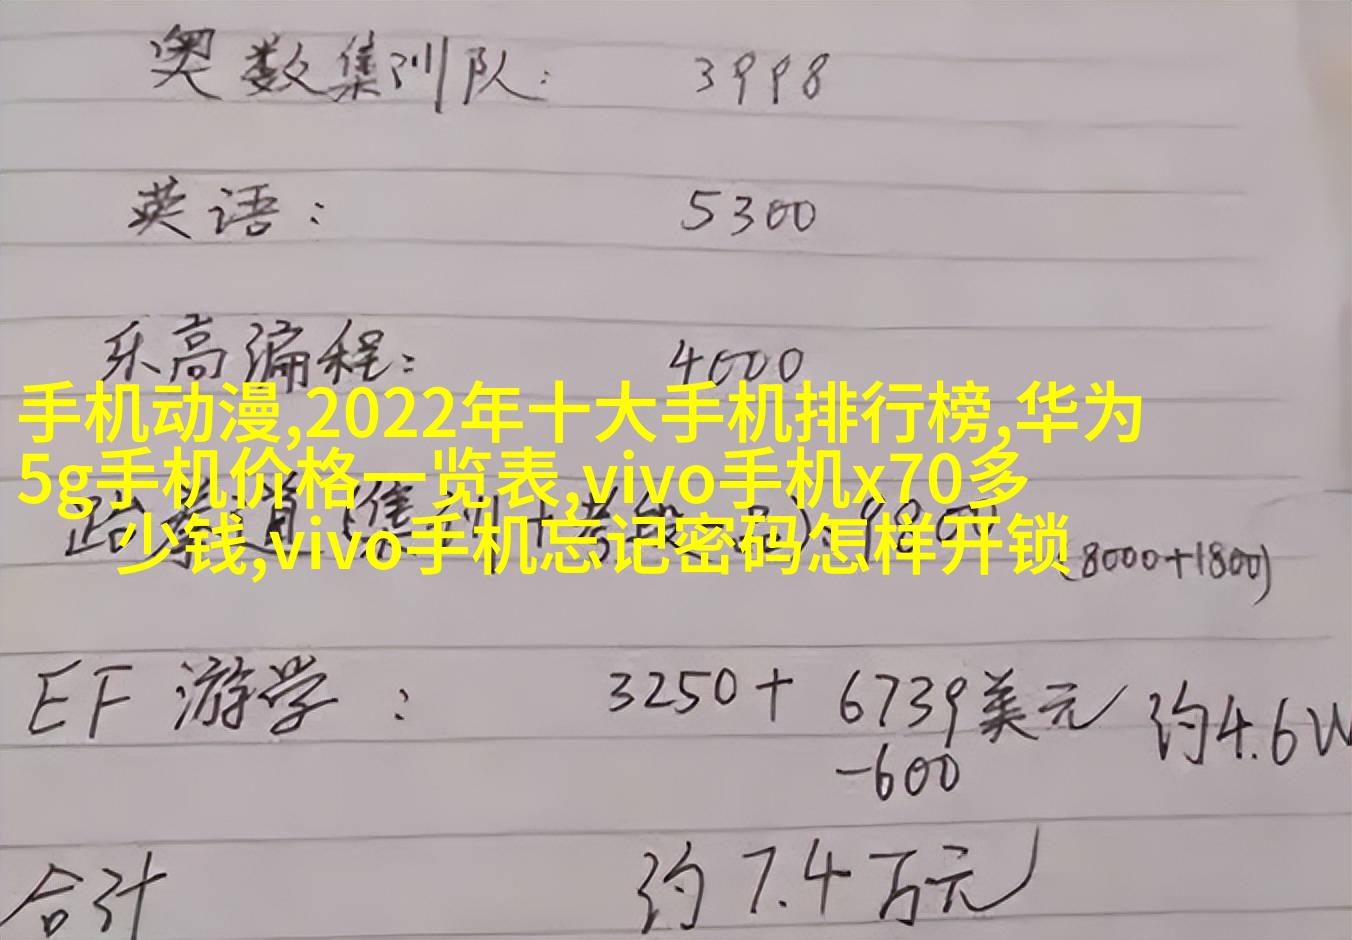 奥数集训队： 3998
英语： 5300
乐高编程： 4000
手机动漫,2022年十大手机排行榜,华为
5g手机价格一览表,vivo手机x70多
少钱,vivo手机忘记密码怎样开锁
跆拳道(集训+考级 ): 9800
(8000+1800)
EF 游学： 3250+ 6739美元 约4.6W
-600
合计 约7.4万元